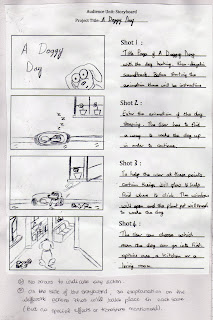 Audience Unit: Storyboard
Project Title: A Doggy Day
A Doggy
Day
Shot 1 :
Title Page of A Doggy Day
with the dog barking. Free
soundtrack. Before starting the
animation there will be instructions
Shot 2 :
Enter the animation of the dog
sleeping. The User has to find
a way to wake the dog up
in order to continue.
Shot 3 :
To help the user at three points
certain things will glow &
find. The window
will open and the plant pot will
to wake the dog.
Shot 4 :
The User can choose which
room the dog can go into first.
options are a kitchen or a
living room.
No arrows to indicate any action.
On the side of the storyboard, an explanation on the
different actions that will take place in each scene
(But no special effects or keyframes mentioned).